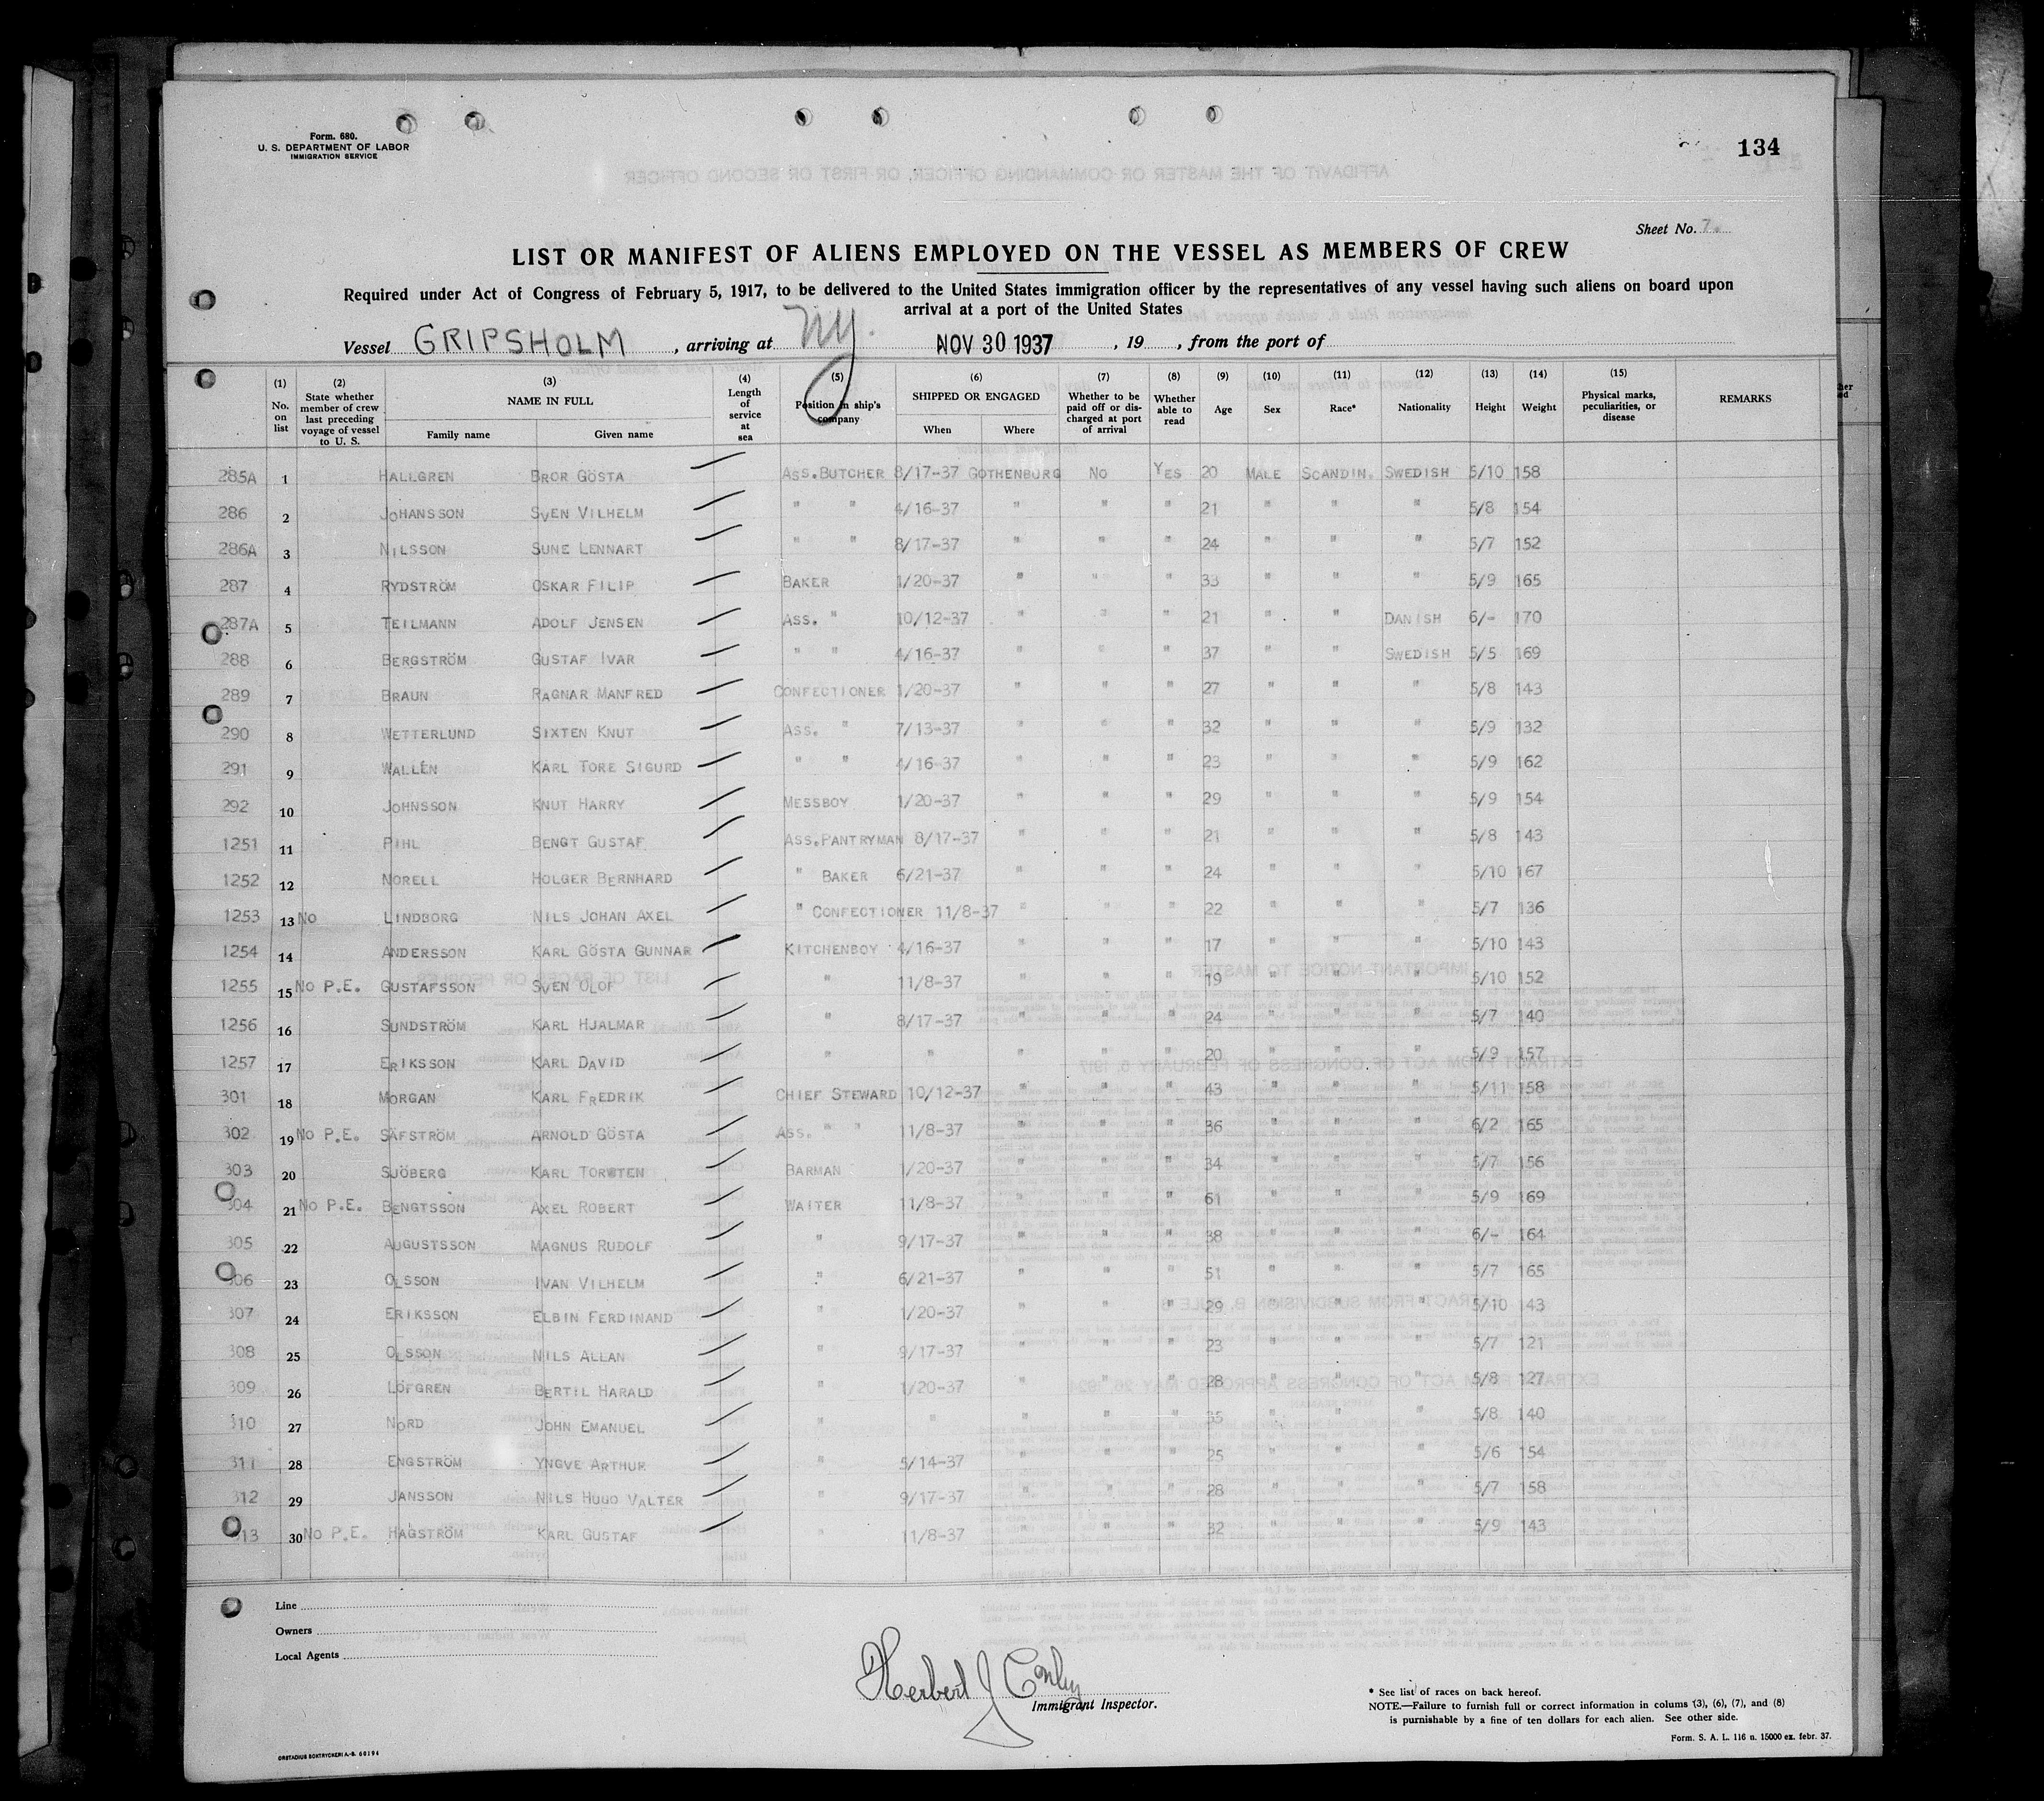 Form. 680.
U. S. DEPARTMENT OF LABOR
IMMIGRATION SERVICE
134
Sheet No. 7.
LIST OR MANIFEST OF ALIENS EMPLOYED ON THE VESSEL AS MEMBERS OF CREW
Required under Act of Congress of February 5, 1917, to be delivered to the United States immigration officer by the representatives of any vessel having such aliens on board upon
arrival at a port of the United States
Vessel GRIPSHOLM, arriving at NY. NOV 30 1937, 19 , from the port of
(1) No. on list (2) State whether member of crew last preceding voyage of vessel to U. S. (3) NAME IN FULL Family name Given name (4) Length of service at sea (5) Position in ship's company (6) SHIPPED OR ENGAGED When Where (7) Whether to be paid off or discharged at port of arrival (8) Whether able to read (9) Age (10) Sex (11) Race* (12) Nationality (13) Height (14) Weight (15) Physical marks, peculiarities, or disease REMARKS
285A 1 HALLGREN BROR GÖSTA ASS.BUTCHER 8/17-37 GOTHENBURG NO YES 20 MALE SCANDIN. SWEDISH 5/10 158
286 2 JOHANSSON SVEN VILHELM " " 4/16-37 " " " 21 " " " 5/8 154
286A 3 NILSSON SUNE LENNART " " 8/17-37 " " " 24 " " " 5/7 152
287 4 RYDSTRÖM OSKAR FILIP BAKER 1/20-37 " " " 33 " " " 5/9 165
287A 5 TEILMANN ADOLF JENSEN ASS. " 10/12-37 " " " 21 " " DANISH 6/- 170
288 6 BERGSTRÖM GUSTAF IVAR " " 4/16-37 " " " 37 " " SWEDISH 5/5 169
289 7 BRAUN RAGNAR MANFRED CONFECTIONER 1/20-37 " " " 27 " " " 5/8 143
290 8 WETTERLUND SIXTEN KNUT ASS. " 7/13-37 " " " 32 " " " 5/9 132
291 9 WALLÉN KARL TORE SIGURD " " 4/16-37 " " " 23 " " " 5/9 162
292 10 JOHNSSON KNUT HARRY MESSBOY 1/20-37 " " " 29 " " " 5/9 154
1251 11 PIHL BENGT GUSTAF ASS.PANTRYMAN 8/17-37 " " " 21 " " " 5/8 143
1252 12 NORELL HOLGER BERNHARD " BAKER 6/21-37 " " " 24 " " " 5/10 167
1253 13 NO LINDBORG NILS JOHAN AXEL " CONFECTIONER 11/8-37 " " " 22 " " " 5/7 136
1254 14 ANDERSSON KARL GÖSTA GUNNAR KITCHENBOY 4/16-37 " " " 17 " " " 5/10 143
1255 15 NO P.E. GUSTAFSSON SVEN OLOF " 11/8-37 " " " 19 " " " 5/10 152
1256 16 SUNDSTRÖM KARL HJALMAR " 8/17-37 " " " 24 " " " 5/7 140
1257 17 ERIKSSON KARL DAVID " " " " " 20 " " " 5/9 157
301 18 MORGAN KARL FREDRIK CHIEF STEWARD 10/12-37 " " " 43 " " " 5/11 158
302 19 NO P.E. SÄFSTRÖM ARNOLD GÖSTA ASS. " " 11/8-37 " " " 36 " " " 6/2 165
303 20 SJÖBERG KARL TORWTEN BARMAN 1/20-37 " " " 34 " " " 5/7 156
304 21 NO P.E. BENGTSSON AXEL ROBERT WAITER 11/8-37 " " " 61 " " " 5/9 169
305 22 AUGUSTSSON MAGNUS RUDOLF " 9/17-37 " " " 38 " " " 6/- 164
306 23 OLSSON IVAN VILHELM " 6/21-37 " " " 51 " " " 5/7 165
307 24 ERIKSSON ELBIN FERDINAND " 1/20-37 " " " 29 " " " 5/10 143
308 25 OLSSON NILS ALLAN " 9/17-37 " " " 23 " " " 5/7 121
309 26 LÖFGREN BERTIL HARALD " 1/20-37 " " " 28 " " " 5/8 127
310 27 NORD JOHN EMANUEL " " " " " 35 " " " 5/8 140
311 28 ENGSTRÖM YNGVE ARTHUR " 5/14-37 " " " 25 " " " 5/6 154
312 29 JANSSON NILS HUGO VALTER " 9/17-37 " " " 28 " " " 5/7 158
313 30 NO P.E. HAGSTRÖM KARL GUSTAF " 11/8-37 " " " 32 " " " 5/9 143
Line
Owners
Local Agents
Herbert J Conley
Immigrant Inspector.
* See list of races on back hereof.
NOTE.—Failure to furnish full or correct information in colums (3), (6), (7), and (8)
is purnishable by a fine of ten dollars for each alien. See other side.
Form. S. A. L. 116 n. 15000 ex. febr. 37.
ORSTADIUS BOKTRYCKERI A.-B. 60194